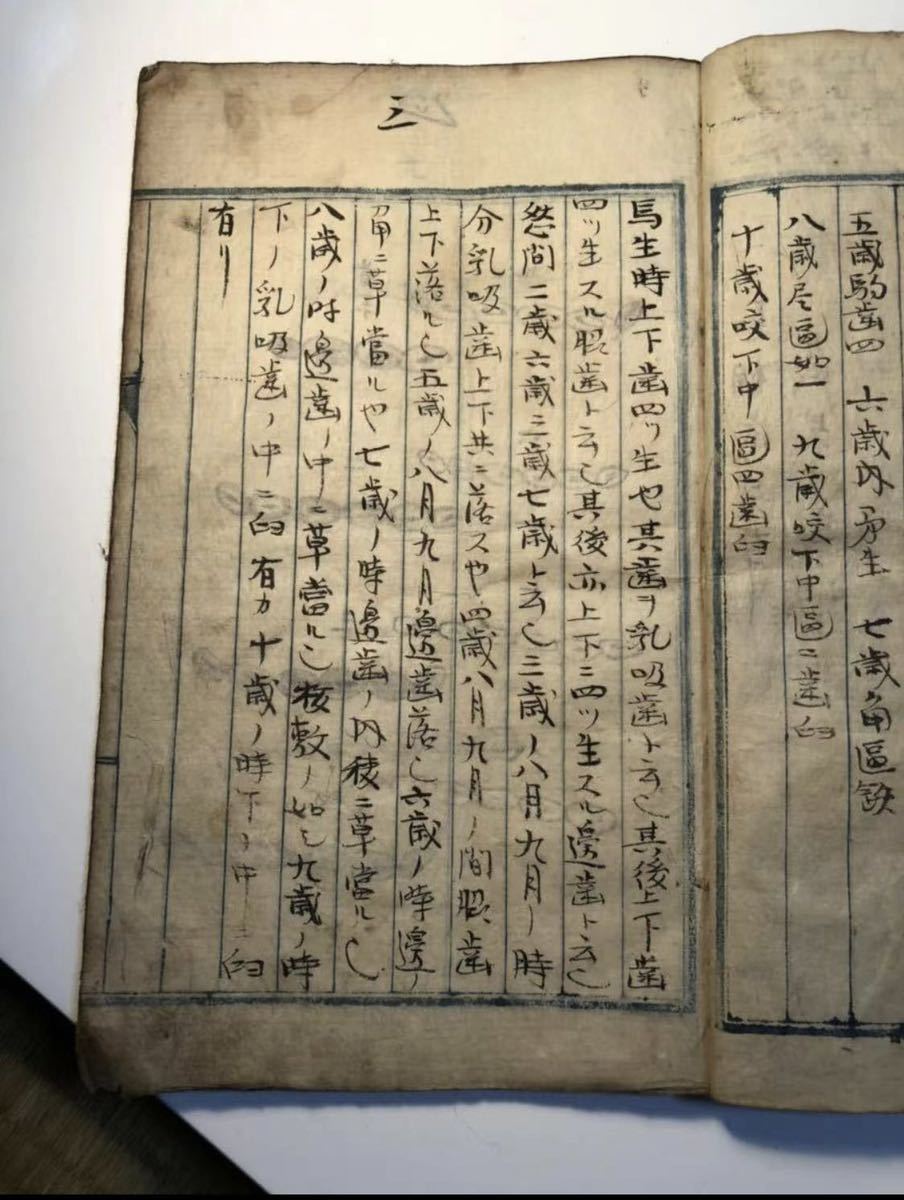 五歳駒歯四 六歳内牙生 七歳角區缺
八歳尽區如一 九歳咬下中區二歯臼
十歳咬下中區四歯臼
三
馬生時上下歯四ツ生也其歯ヲ乳吸歯ト云也其後上下歯
四ツ生スル 歯ト云也其後亦上下ニ四ツ生スル邊歯ト云也
然間二歳六歳三歳七歳ト云也三歳ノ八月九月ノ時
分乳吸歯上下共ニ落スヤ四歳八月九月ノ間 歯
上下落ル也五歳ノ八月九月邊歯落也六歳ノ時邊ノ
ニ草當ルヤ七歳ノ時邊歯ノ内 ニ草當ル也
八歳ノ時邊歯ノ中ニ草當ル也 敷ノ如シ九歳ノ時
下ノ乳吸歯ノ中ニ臼有カ十歳ノ時下ノ中ニ臼
有リ